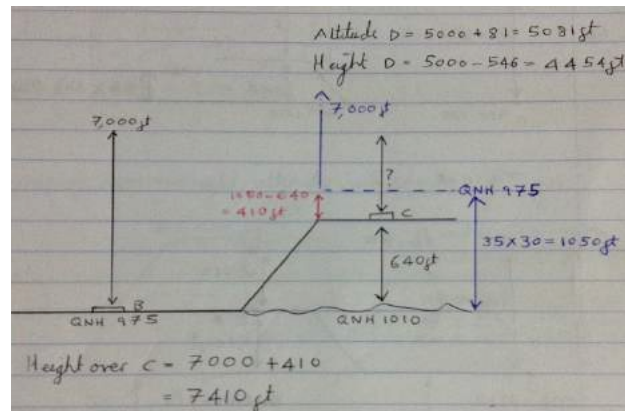 Altitude D = 5000 + 81 = 5081ft
Height D = 5000 - 546 = 4454ft
7,000ft
7,000ft
?
QNH 975
1050-640
= 410ft
C
35 x 30 = 1050ft
640ft
B
QNH 975
QNH 1010
Height over C = 7000 + 410
= 7410ft